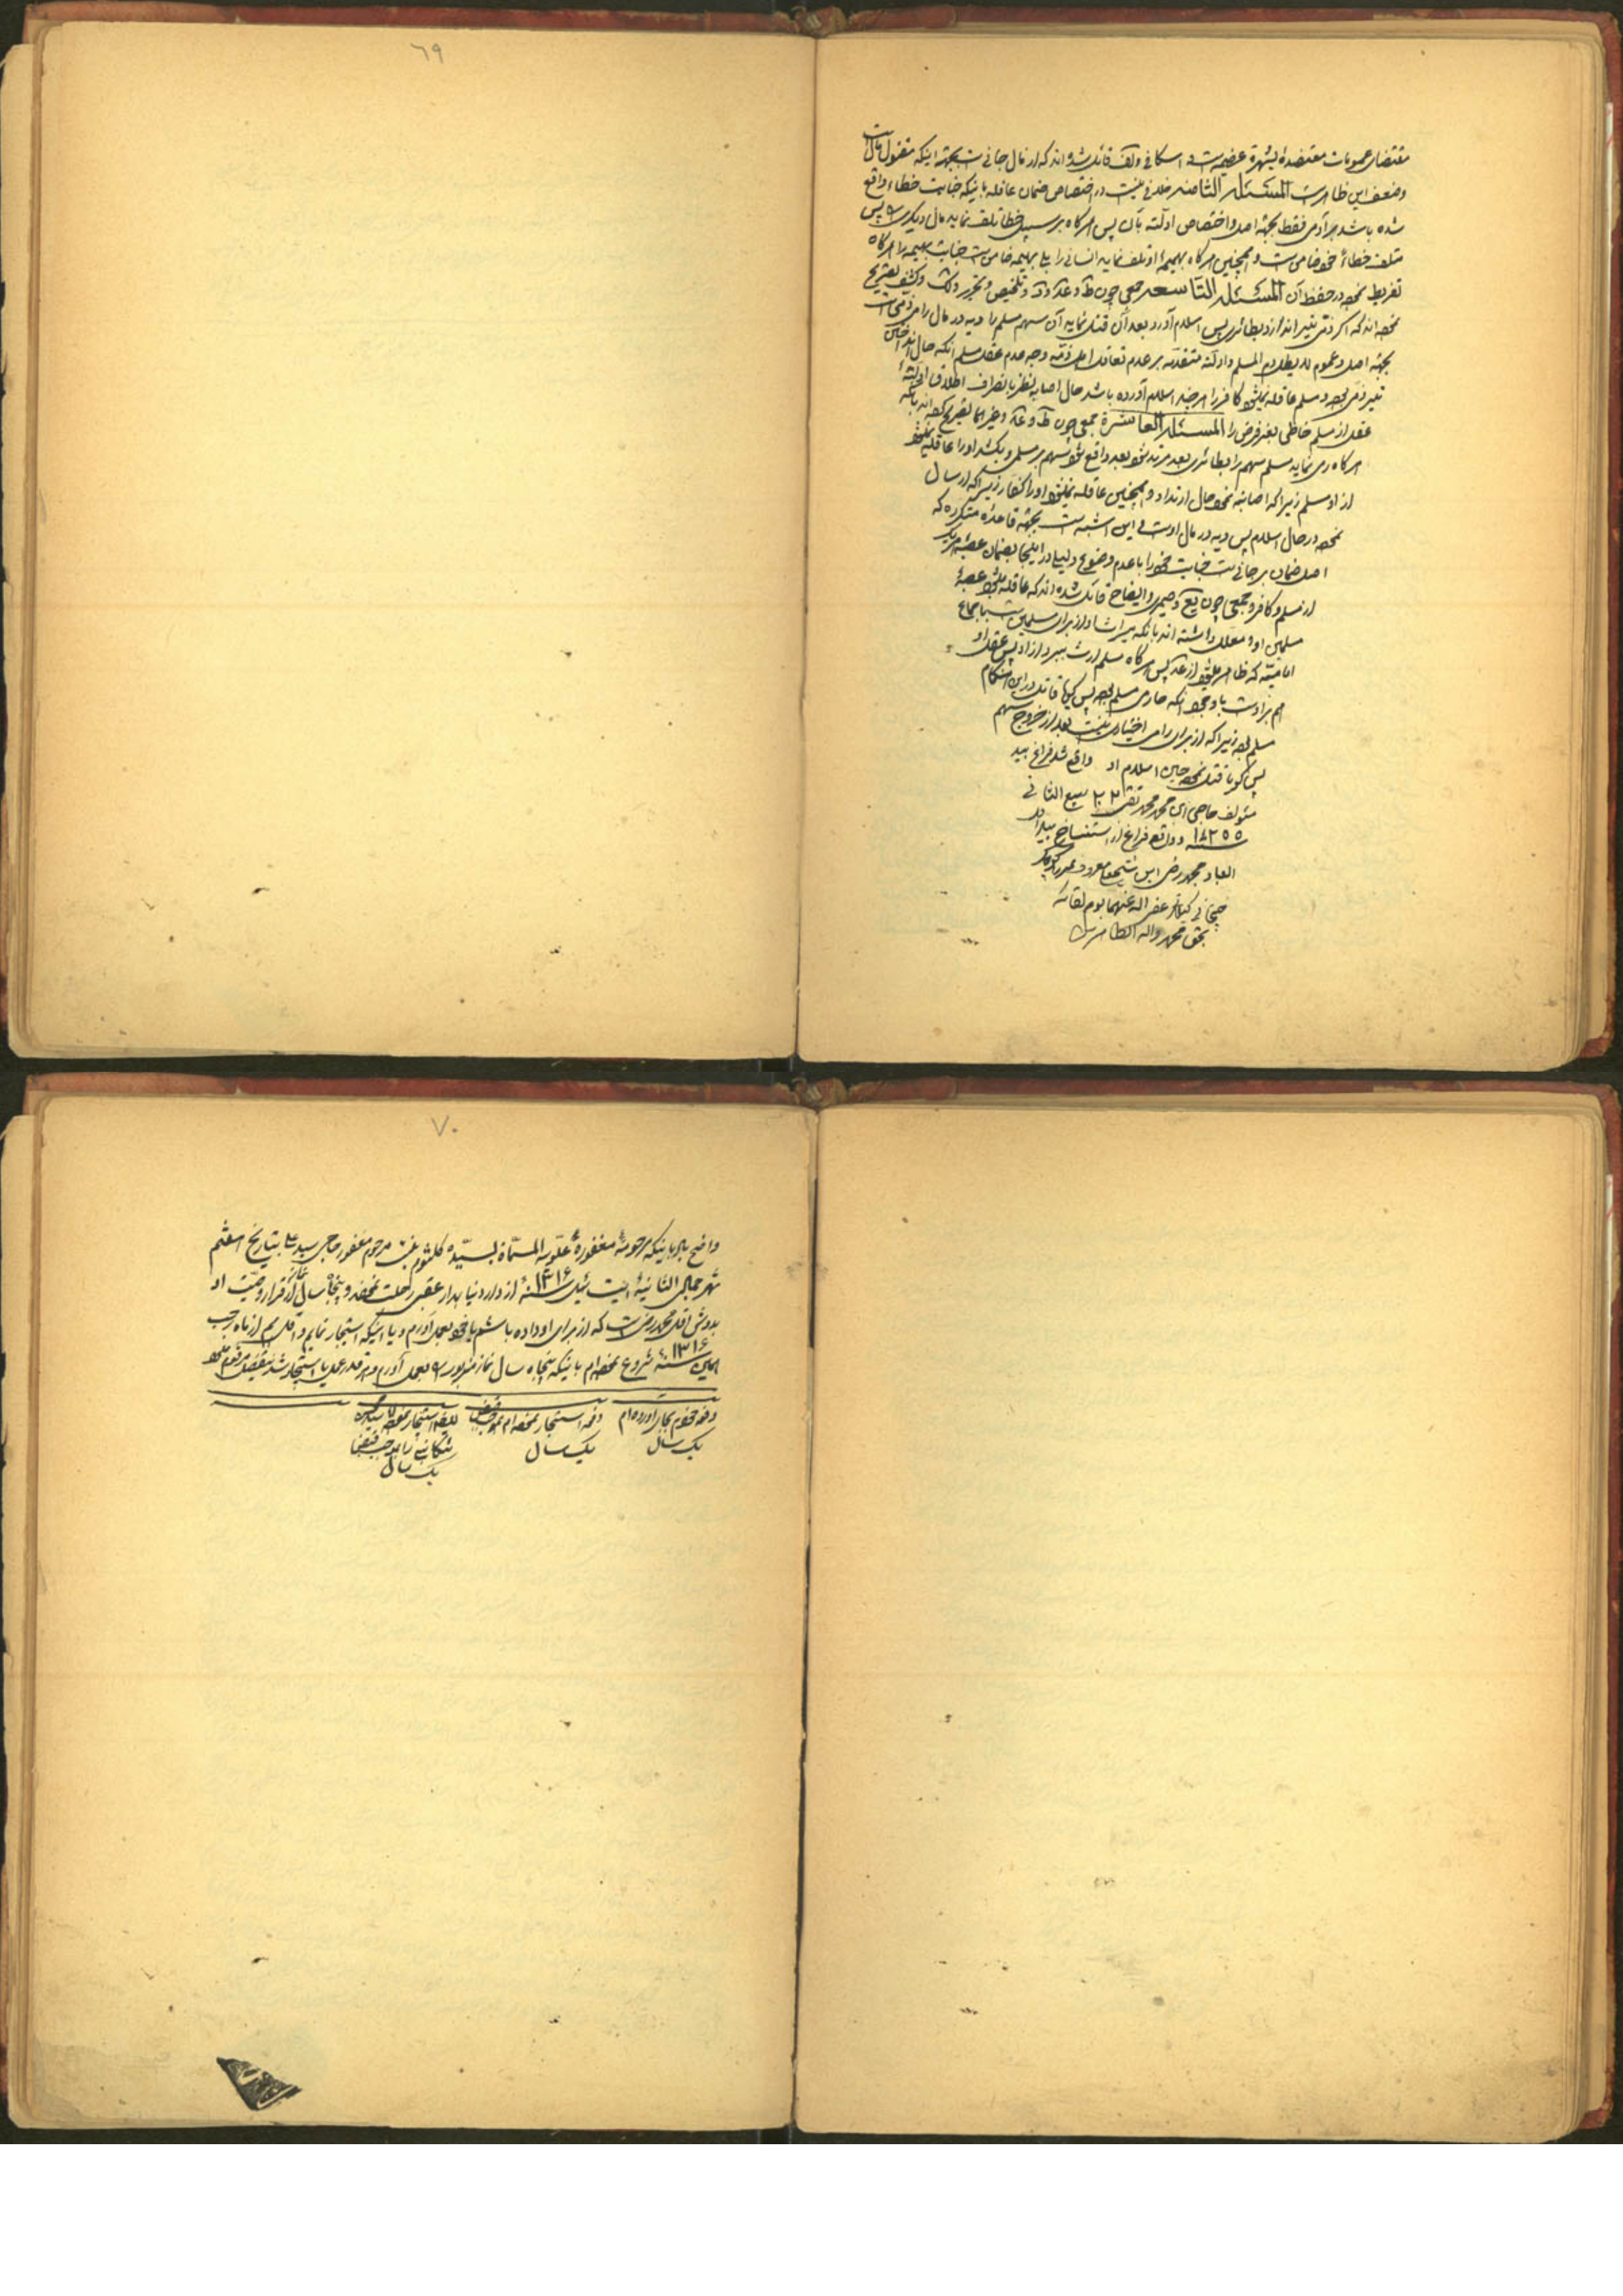 ٦٩
مقتضای عمومات معتضدهٔ بشهرة عظیمه است و اسکافی و لف قائل شده‌اند که از مال جانی است بجهة اینکه مقتول
و ضعف این ظاهر است المسئلة الثامنه خلافی نیست در اختصاص ضمان عاقله باینکه جنایت خطاء واقع
شده باشد بر آدمی فقط بجهة اصل و اختصاص ادلّه بآن پس هرگاه بر سبیل خطا تلف نماید مال دیگری را پس
متلف خطاءً خود ضامن است و همچنین هرگاه بهیمهٔ او تلف نماید انسانی را بلی بهیمه ضامن است جنایت بهیمه را هرگاه
تفریط نموده در حفظ آن المسئلة التّاسعه جمعی چون ط و عد و د و تلخیص و تحریر و لک و کشف تصریح
نموده‌اند که اگر ذمّی تیر اندازد بطائری پس اسلام آورد بعد آن قتل نماید آن سهم مسلم را دیه در مال رامی است
بجهة اصل و عموم لا یطل دم المسلم و ادلّه متقدّمه بر عدم تعاقل اهل ذمّه وجه عدم عقل مسلم آنکه حال
تیر ذمّی بوده و مسلم عاقله نمیشود کافر را هر چند اسلام آورده باشد حال اصابه نظر بانصراف اطلاق
عقل از مسلم خاطی بغیر فرض را المسئلة العاشرة جمعی چون ط و عد و غیرهما تصریح کرده‌اند باینکه
هرگاه رمی نماید مسلم سهم را بطائری بعد مرتد شود بعد واقع شود سهم بر مسلمی و بکشد او را عاقله نمیشود
از او مسلم زیرا که اصابه نموده حال ارتداد و همچنین عاقله نمیشود او را کفار زیرا که ارسال
نموده در حال اسلام پس دیه در مال اوست و این اشبه است بجهة قاعدهٔ متکرره که
اصل ضمان بر جانی است جنایت خود را با عدم وضوح دلیل در اینجا بضمان عصبهٔ
از مسلم و کافر و جمعی چون یع و صیمری و ایضاح قائل شده‌اند که عاقله میشود عصبهٔ
مسلمین او و معلل داشته‌اند بآنکه میراث او از برای مسلمین است باجماع
امامیّه که ظاهر میشود از عد پس هرگاه مسلم ارث ببرد از او پس عقل او
هم بر اوست با وجود آنکه حال رمی مسلم بوده پس گویا قاتل در این هنگام
مسلم بوده زیرا که از برای رامی اختیاری نیست بعد از خروج سهم
پس گویا قتل نموده حین اسلام او واقع شد فراغ بید
مؤلف حاجی ابن محمد محمد تقی ۲۲ ربیع الثانی
سنه ۱۲۵۵ و واقع فراغ از استنساخ بید اقل
العباد محمد رضی ابن
گیلانی عفی الله عنهما یوم لقائه
بحق محمد و اله الطاهرین
٧٠
واضح باد باینکه مرحومهٔ مغفورهٔ علّویه المسمّاة بسیّده کلثوم بنت مرحوم مغفور حاجی سید علی بتاریخ هشتم
شهر جمادی الثانیهٔ ایت ئیل سنه ۱۳۱۶ از دار دنیا بدار عقبی رحلت نموده و پنجاه سال نماز از قرار وصیّت او
بدوش اقل محمد رضی است که از برای او داده باشم یا خود بعمل آورم و یا اینکه استیجار نمایم و اقل هم از ماه رجب
همین سنه ۱۳۱۶ شروع نموده‌ام باینکه پنجاه سال نماز مزبوره را بعمل آورم و هر قدر عمل یا استیجار شد بتفصیل مرقوم میشود
دفعه خودم بجای آورده‌ام
یک سال
دفعه استیجار نموده‌ام بموجب قبض
یک سال
ایضا استیجار نموده
بموجب قبض
یک سال